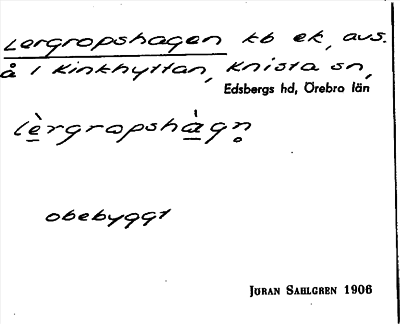 Lergropshagen kb ek, avs.
å 1 Kinkhyttan, Knista sn,
Edsbergs hd, Örebro län
lèrgropshàgn̥
obebyggt
Jöran Sahlgren 1906